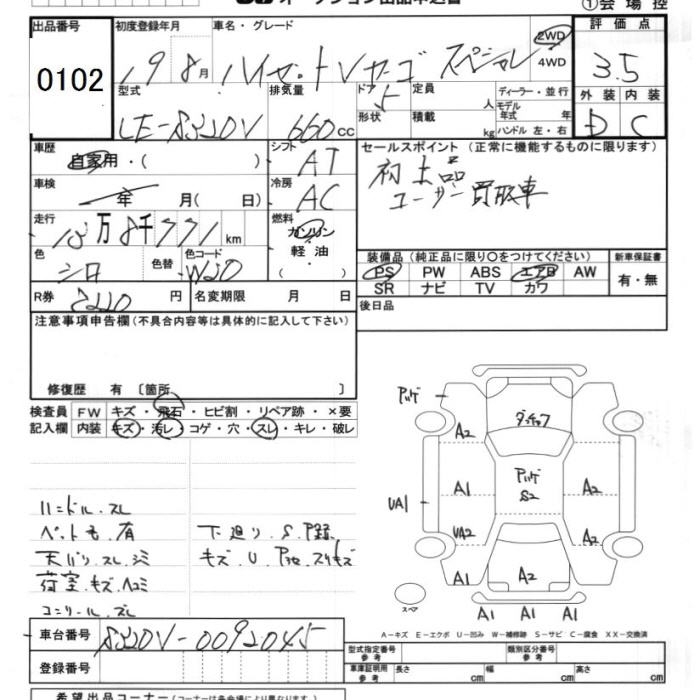 オークション出品申込書
①会場控
出品番号 初度登録年月 車名・グレード 評価点
0102 19 8月 ハイゼットVカーゴ スペシャル 2WD 4WD 3.5
型式 排気量 ドア 定員 ディーラー・並行 外装 内装
LE-S320V 660cc 5 人 モデル年式 年 D C
形状 積載 kg ハンドル 左・右
車歴 シフト セールスポイント (正常に機能するものに限ります)
自家用・( ) AT 初出品
車検 年 月( 日) 冷房 AC ユーザー買取車
走行 燃料
13万8千771km ガソリン
色 色替 色コード 軽油 装備品 (純正品に限り○をつけてください) 新車保証書
シロ W20 ・( ) PS PW ABS エアB AW 有・無
SR ナビ TV カワ
R券 円 名変期限 月 日 後日品
注意事項申告欄 (不具合内容等は具体的に記入して下さい)
修復歴 有 〔箇所 〕
検査員 FW キズ・飛石・ヒビ割・リペア跡・×要
記入欄 内装 キズ・汚レ・コゲ・穴・スレ・キレ・破レ
ハンドル.スレ
ペット毛.有 下廻り.S.P録.
天バリ.スレ.シミ キズ.U.
荷室.キズ.ヘコミ
コンソール.スレ
A2 ダッチャク
A1 S2 A2
UA1 UA2 A2
A1 A2
スペア A1 A1 A1
A－キズ E－エクボ U－凹み W－補修跡 S－サビ C－腐食 XX－交換済
車台番号 S320V-0092045
型式指定番号 参考 類別区分番号 参考
登録番号 車庫証明用 参考 長さ cm 幅 cm 高さ cm
希望出品コーナー